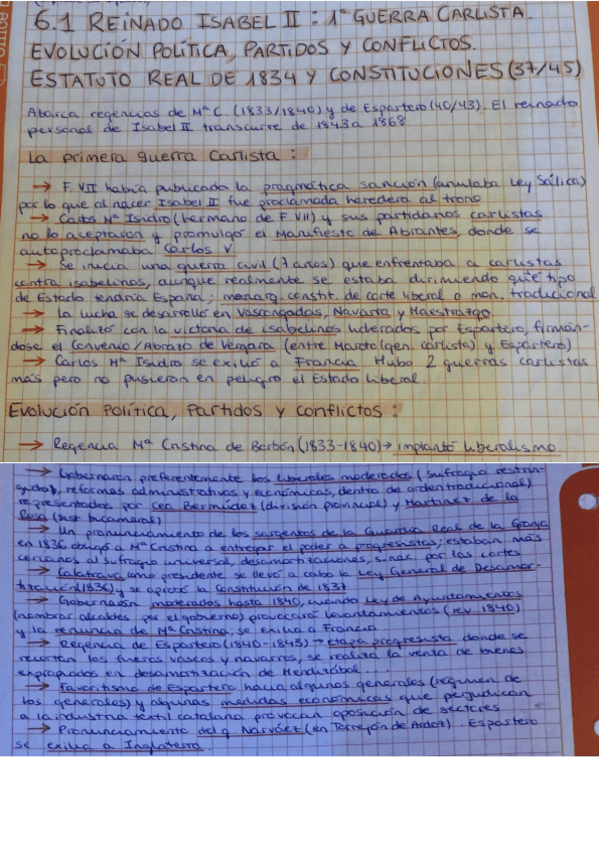 6.1 REINADO ISABEL II : 1ª GUERRA CARLISTA.
EVOLUCIÓN POLÍTICA, PARTIDOS Y CONFLICTOS.
ESTATUTO REAL DE 1834 Y CONSTITUCIONES (37/45)
Abarca regencias de Mª C. (1833/1840) y de Espartero (40/43). El reinado
personal de Isabel II transcurre de 1843 a 1868
La primera guerra Carlista :
→ F. VII había publicado la pragmática sanción (anulaba Ley Sálica)
por lo que al nacer Isabel II fue proclamada heredera al trono
→ Carlos Mª Isidro (hermano de F. VII) y sus partidarios carlistas
no lo aceptaron y promulgó el Manifiesto de Abrantes, donde se
autoproclamaba Carlos V
→ Se inicia una guerra civil (7 años) que enfrentaba a carlistas
contra isabelinos, aunque realmente se estaba dirimiendo qué tipo
de Estado tendría España; monarq. constit. de corte liberal o mon. tradicional
→ La lucha se desarrolló en Vascongadas, Navarra y Maestrazgo
→ Finalizó con la victoria de isabelinos liderados por Espartero, firmán-
dose el Convenio/Abrazo de Vergara (entre Maroto (gen. carlista) y Espartero)
→ Carlos Mª Isidro se exilió a Francia. Hubo 2 guerras carlistas
más pero no pusieron en peligro el Estado Liberal.
Evolución Política, Partidos y conflictos :
→ Regencia Mª Cristina de Borbón (1833-1840) → implantó liberalismo.
→ Gobernaron preferentemente los liberales moderados (sufragio restrin-
gido, reformas administrativas y económicas, dentro de orden tradicional)
representados por Cea Bermúdez (división provincial) y Martínez de la
Rosa (sist. bicameral)
→ Un pronunciamiento de los sargentos de la Guardia Real de la Granja
en 1836 obligó a Mª Cristina a entregar el poder a progresistas; estaban más
cercanos al sufragio universal, desamortizaciones, por las cortes
→ Calatrava como presidente se llevó a cabo la Ley General de Desamor-
tización (1836) y se aprobó la Constitución de 1837
→ Gobernaron moderados hasta 1840, cuando Ley de Ayuntamientos
(nombrar alcaldes por el gobierno) provocaron levantamientos (rev 1840)
y la renuncia de Mª Cristina, se exilia a Francia
→ Regencia de Espartero (1840-1843) → etapa progresista donde se
recortan los fueros vascos y navarros, se realiza la venta de bienes
expropiados en desamortización de Mendizábal.
→ Favoritismo de Espartero hacia algunos generales (régimen de
los generales) y algunas medidas económicas que perjudican
a la industria textil catalana provocan oposición de sectores
→ Pronunciamiento del g. Narváez (en Torrejón de Ardoz). Espartero
se exilia a Inglaterra.